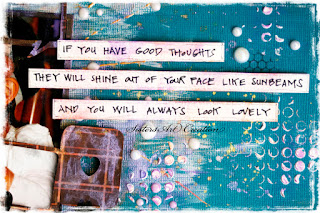 IF YOU HAVE GOOD THOUGHTS
THEY WILL SHINE OUT OF YOUR FACE LIKE SUNBEAMS
AND YOU WILL ALWAYS LOOK LOVELY
Sisters Art Creations